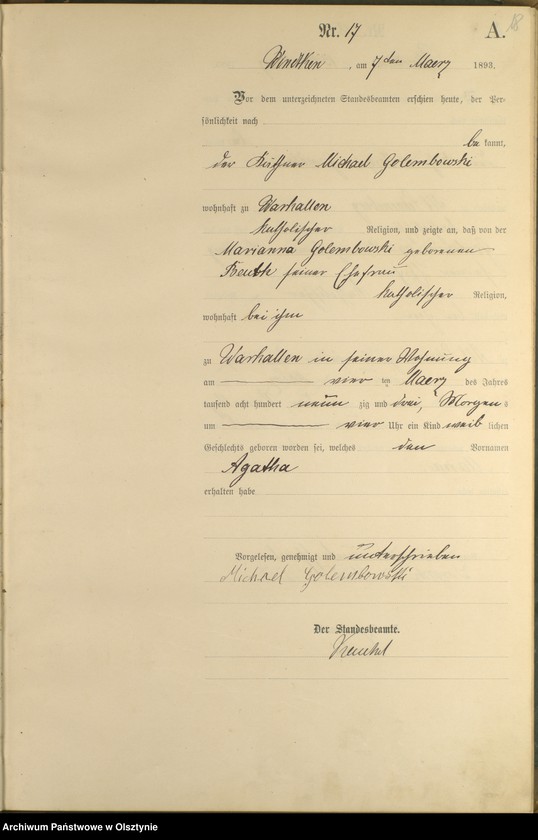 Nr. 17
A. 18
, am 7ten Maerz 1893.
Vor dem unterzeichneten Standesbeamten erschien heute, der Per-
sönlichkeit nach
be kannt,
der Käthner Michael Golembowski
wohnhaft zu Warkallen
katholischer Religion, und zeigte an, daß von der
Marianna Golembowski geborenen
seiner Ehefrau
katholischer Religion,
wohnhaft bei ihm
zu Warkallen in seiner Wohnung
am vier ten Maerz des Jahres
tausend acht hundert neun zig und drei, Morgens
um vier Uhr ein Kind weib lichen
Geschlechts geboren worden sei, welches den Vornamen
Agatha
erhalten habe
Vorgelesen, genehmigt und unterschrieben
Michael Golembowski
Der Standesbeamte.
Archiwum Państwowe w Olsztynie